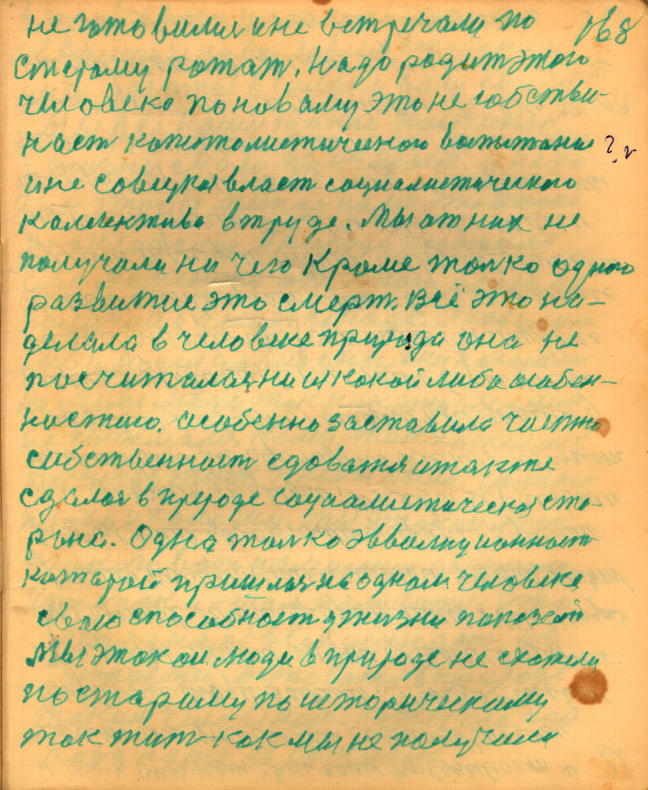 168
не готовился и не встречали по
старому рожат. Надо родит этого
человека по новаму это не собствен-
наст капиталистического
и не совецкая власт социалистического
коллектива в труде. Мы от них не
получали ни чего кроме толко одного
развитие это смерт. Всё это на-
делала в человеке природа она не
посчиталася ни с какой либо особен-
ностию. особенно заставила частно
собственност сдоватя и так же
сдалася в природе социалистическая сто-
рона. Одна толко эвволиционност
каторой пришлося на одном человеке
сваю способност в жизни
Мы этокои люди в природе не схотели
по старому по историческому
так жит как мы не получили